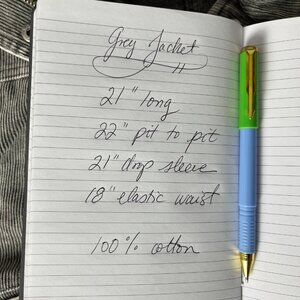 Grey Jacket
21" long
22" pit to pit
21" drop sleeve
18" elastic waist
100% cotton